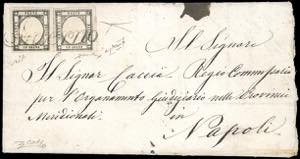 Al Signore
Il Signor Caccia Regio Commissario
per l'Organamento Giudiziario nelle Provincie
Meridionali
in
Napoli